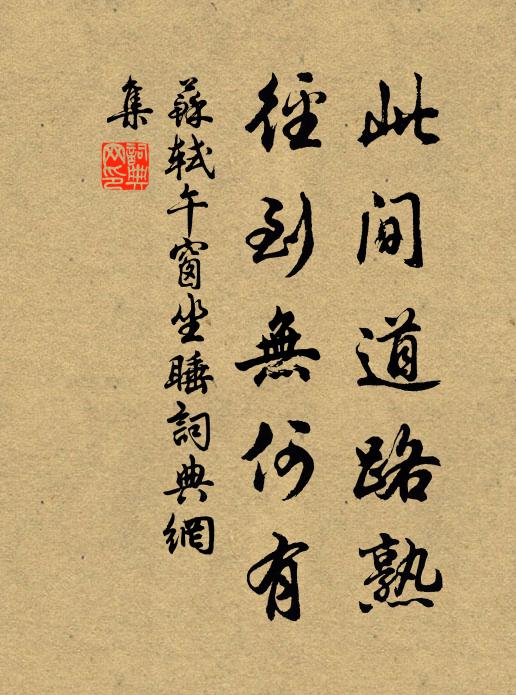 此間道路熟
徑到無何有
蘇軾午窗坐睡詞典網
集
詞典網印